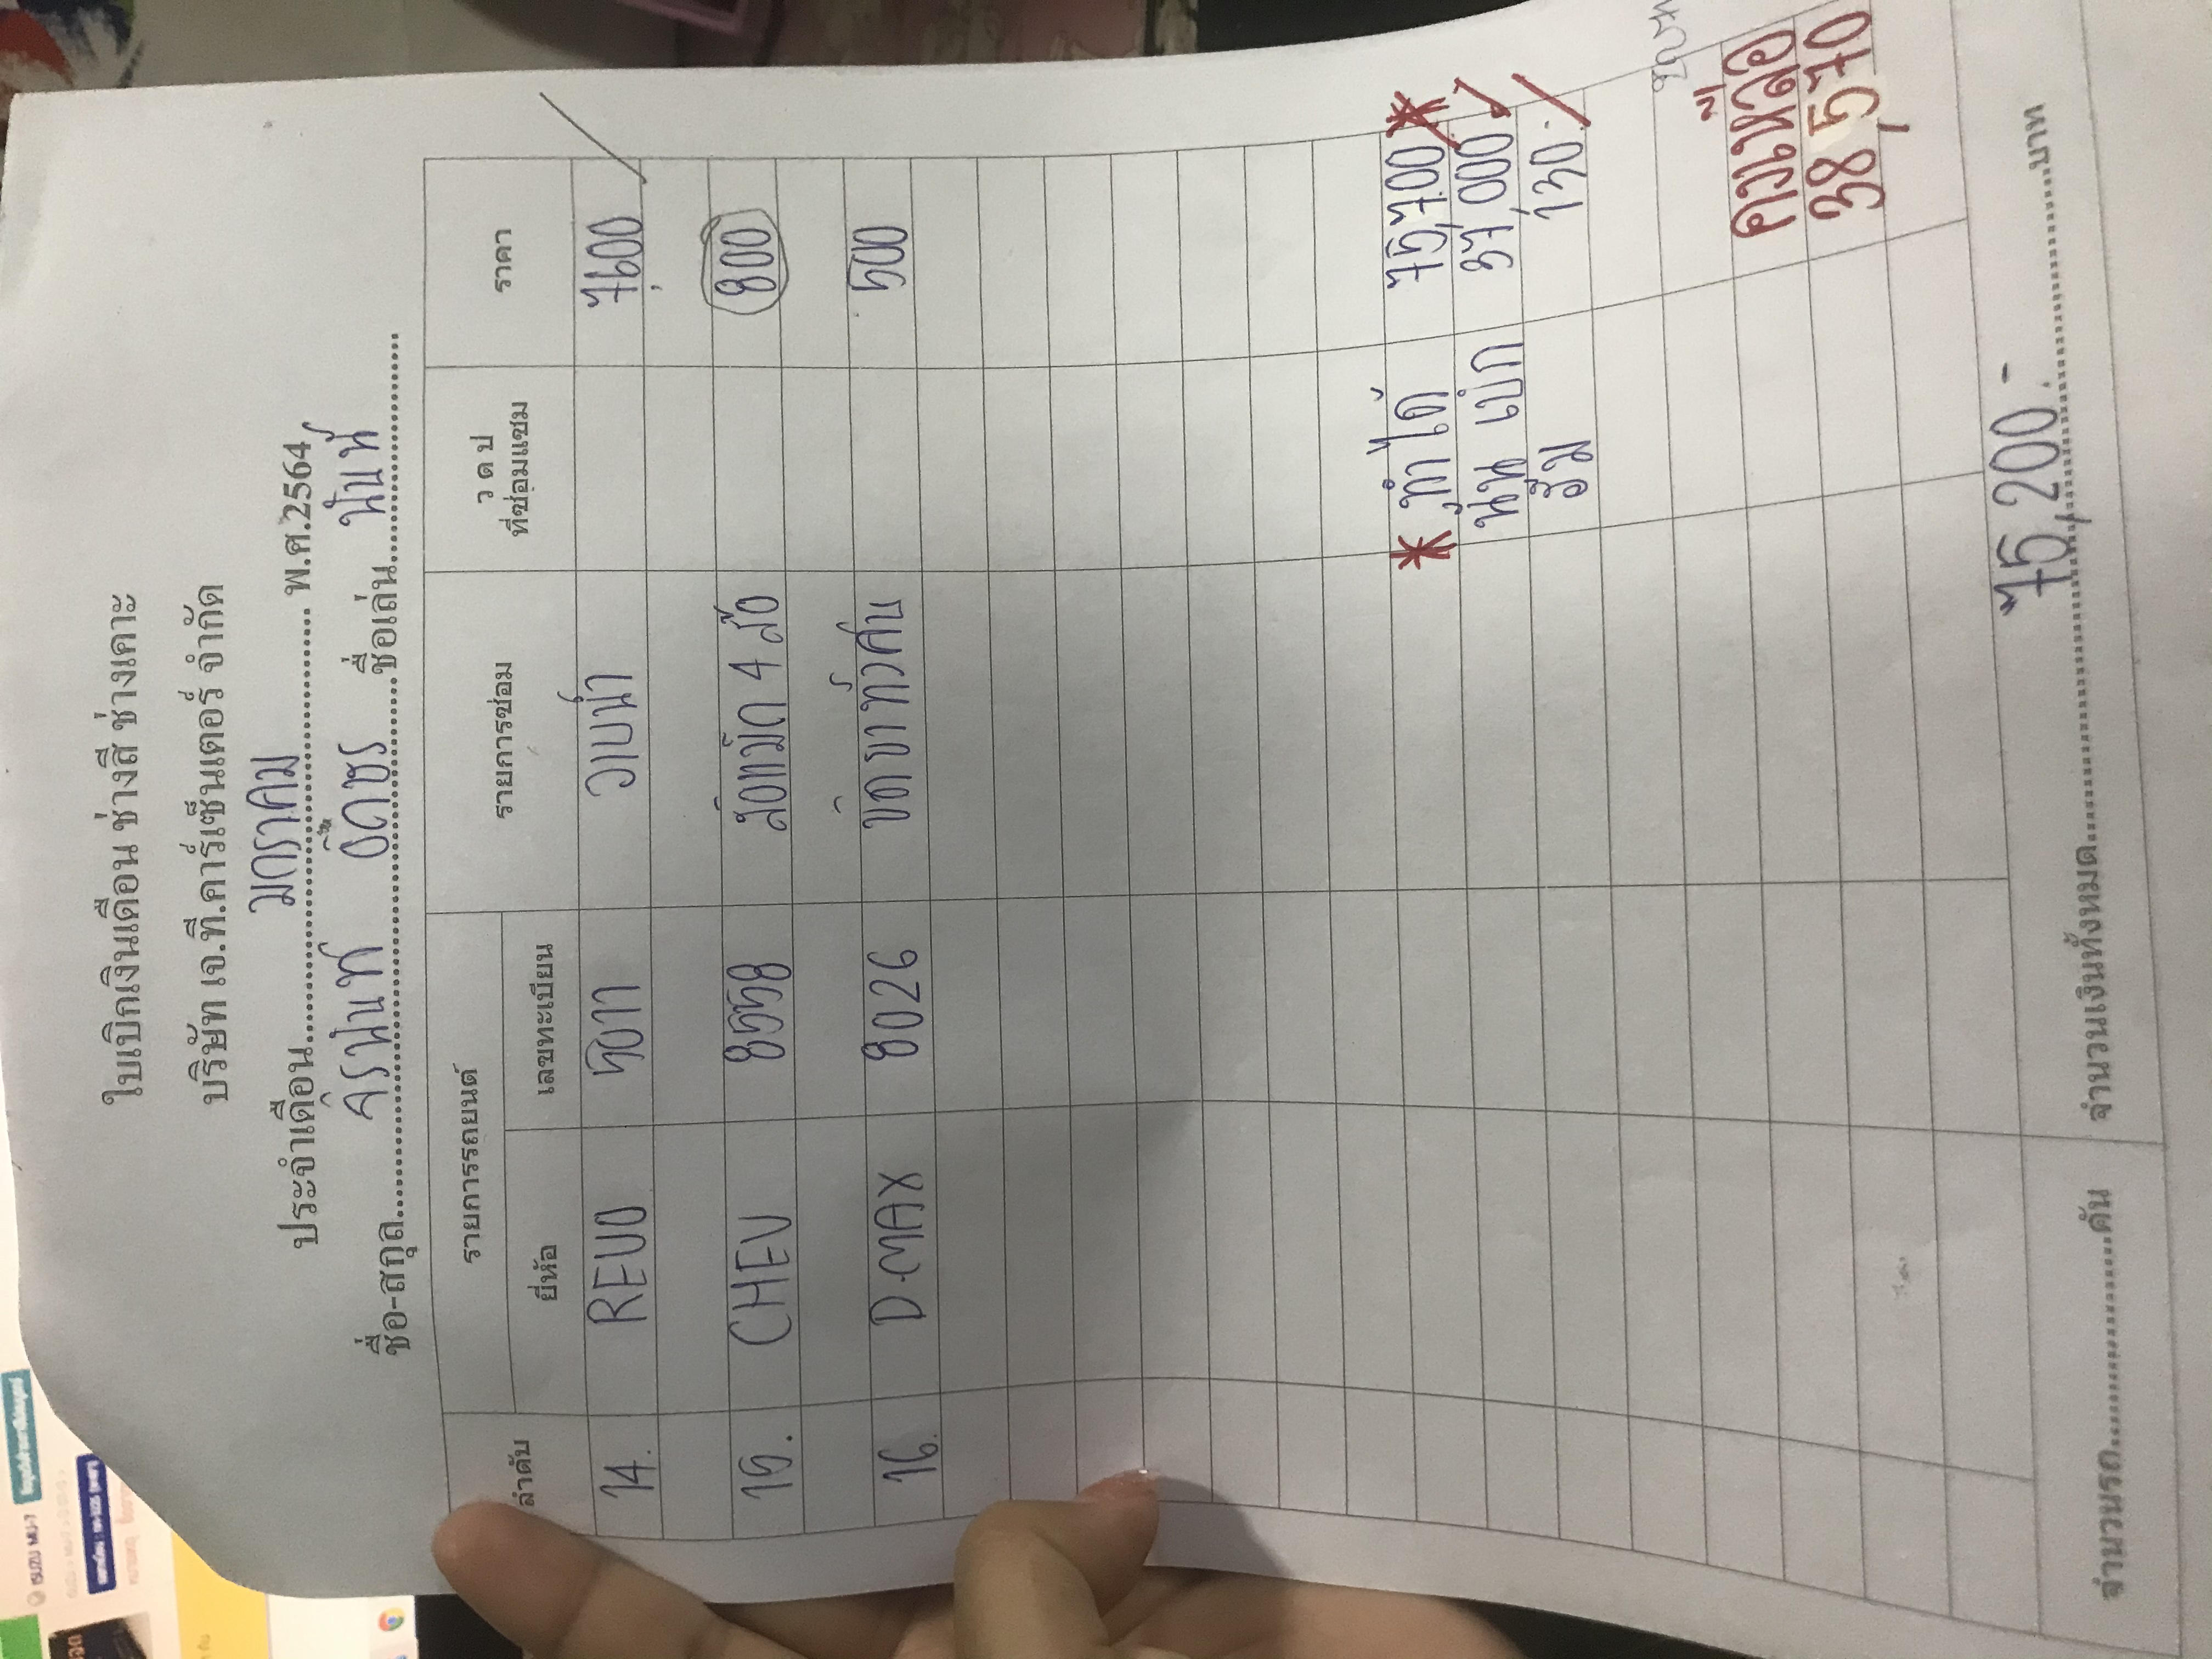 ใบเบิกเงินเดือน ช่างสี ช่างเคาะ
บริษัท เจ.ที.คาร์เซ็นเตอร์ จำกัด
ประจำเดือน.......มกราคม....... พ.ศ.2564
ชื่อ-สกุล.......จิรพนท์.......ชื่อเล่น.......นันท์.......
ลำดับ รายการรถยนต์ รายการซ่อม ว ด ป ที่ซ่อมแซม ราคา
ยี่ห้อ เลขทะเบียน
14. REVO 5077 วาบน้ำ 7600
15. CHEV 8558 800
16. D-MAX 8026 500
* ทำได้ 75,700 *
เบิก 37,000
130.-
คงเหลือ
38,570
75,200.-
จำนวนรถ.......คัน จำนวนเงินทั้งหมด.......บาท